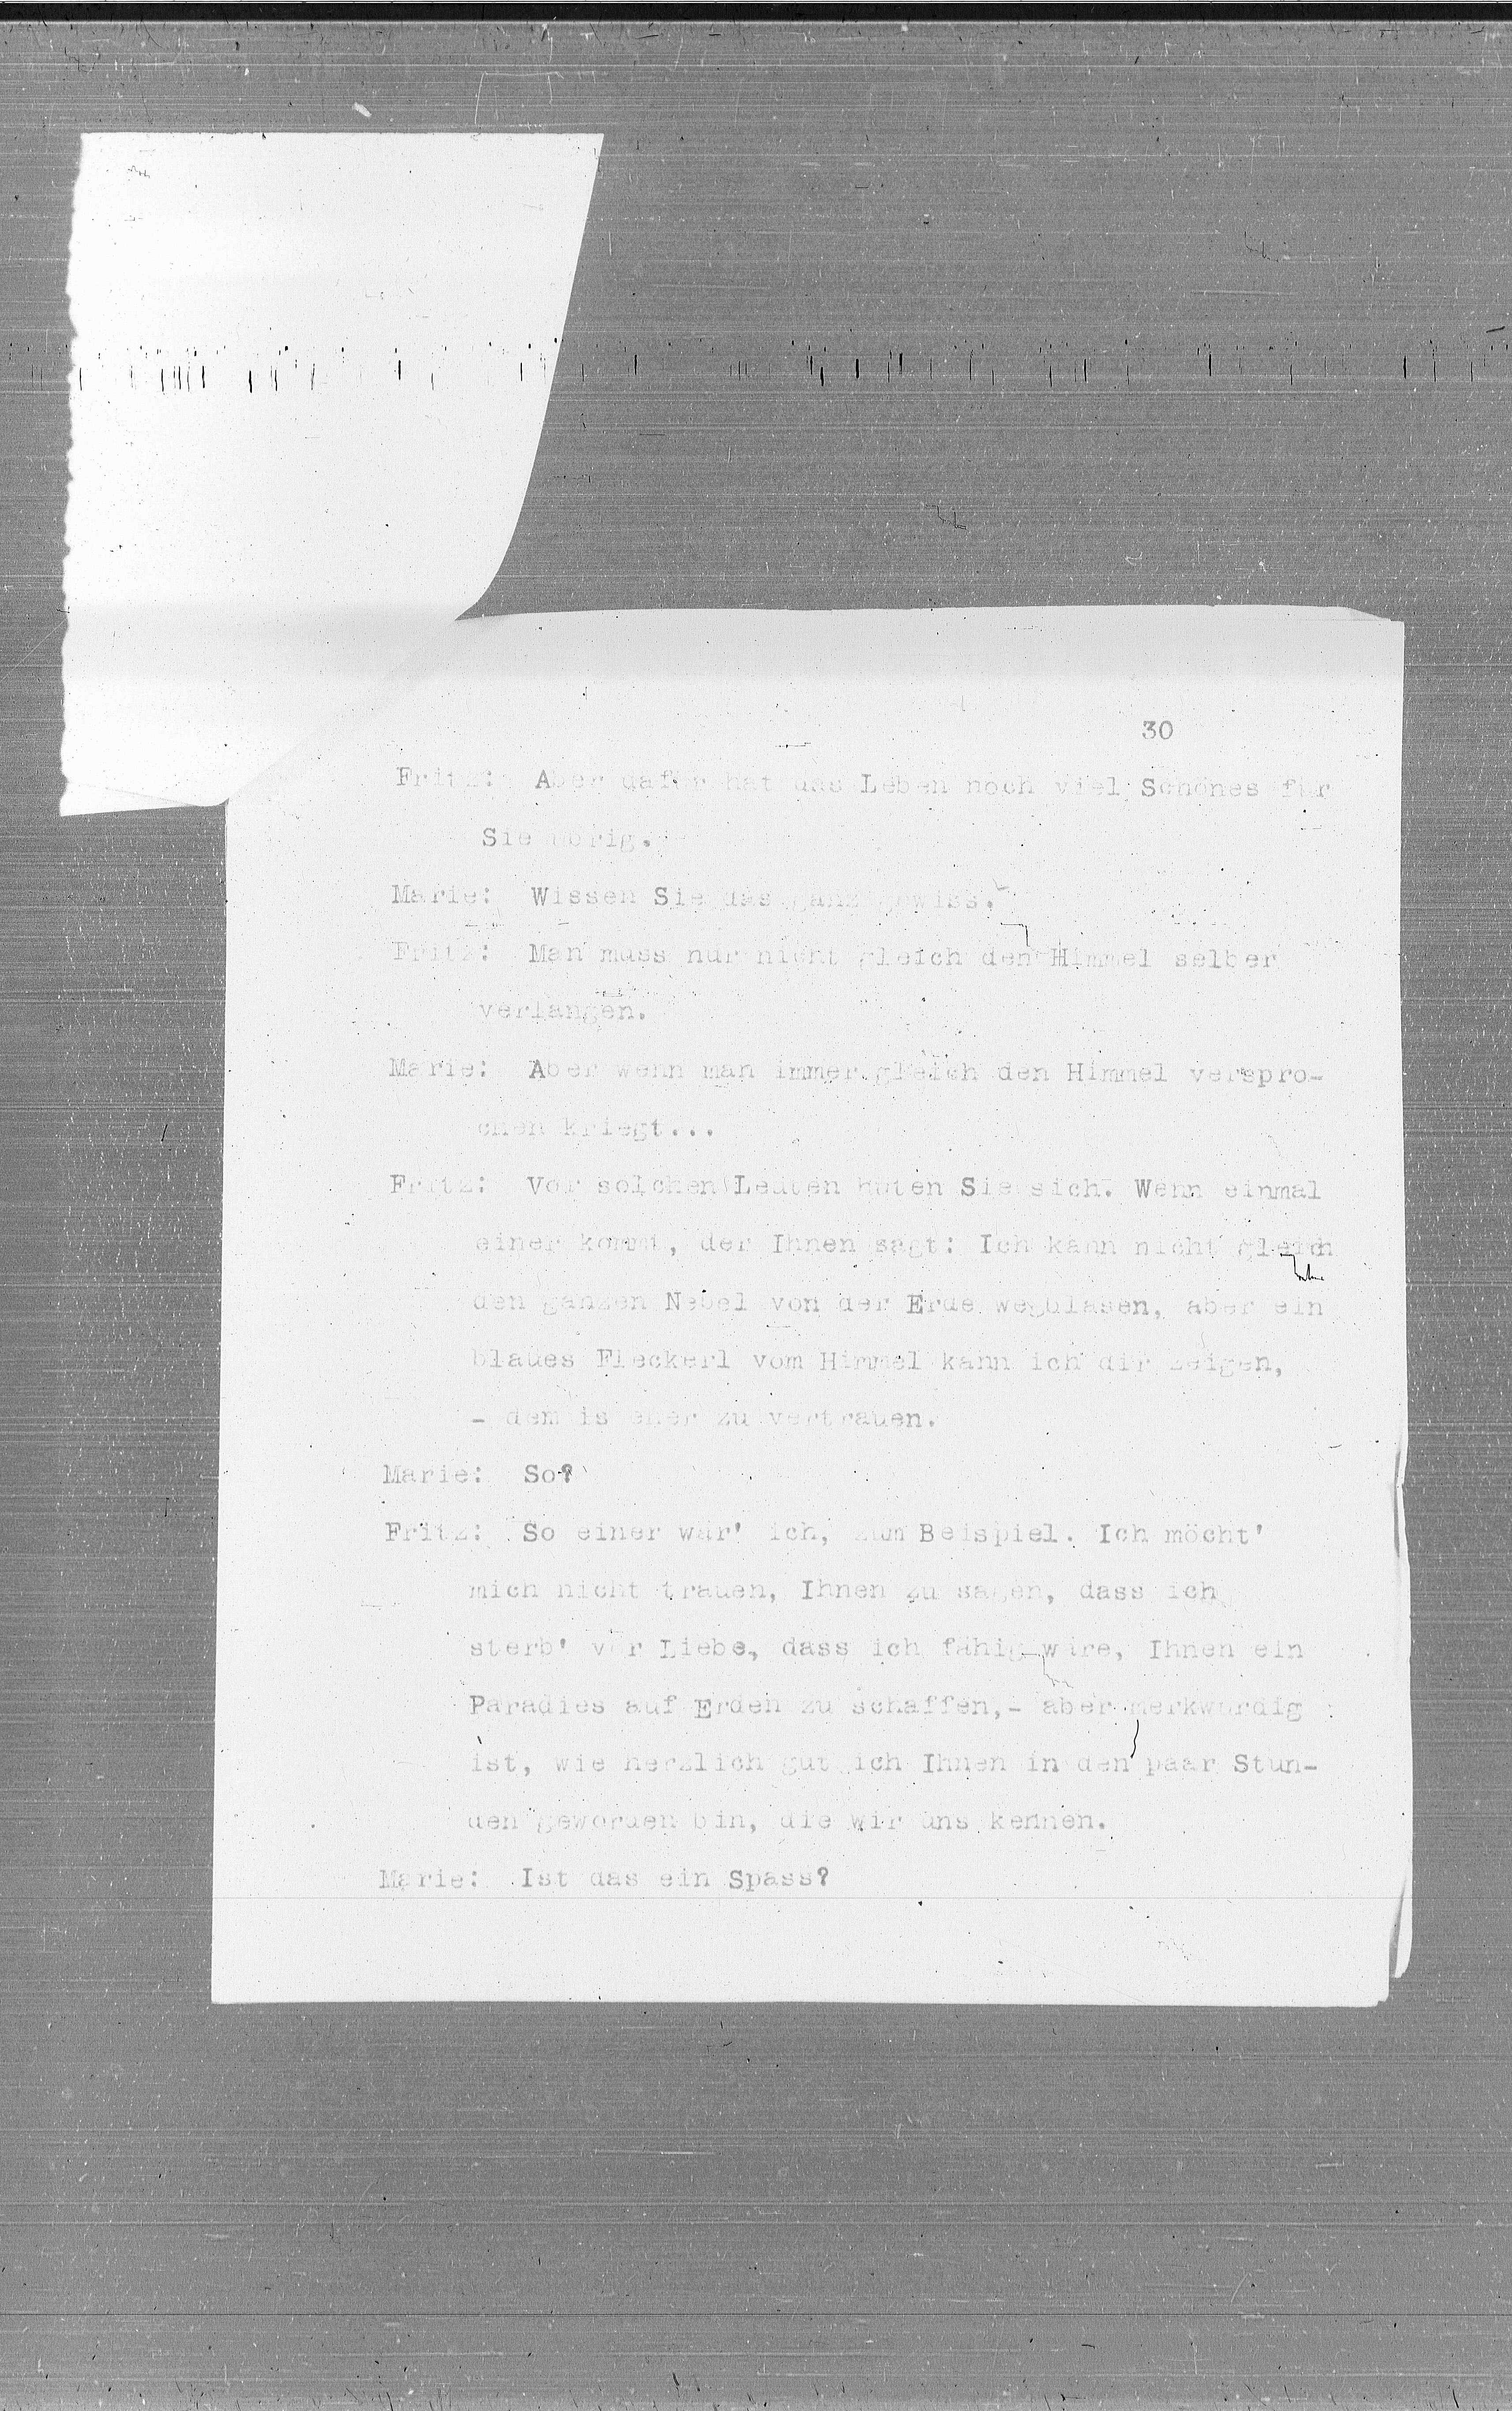 30
Fritz: Aber dafür hat das Leben noch viel Schönes für
Sie übrig.
Marie: Wissen Sie das ganz gewiss?
Fritz: Man muss nur nicht gleich den Himmel selber
verlangen.
Marie: Aber wenn man immer gleich den Himmel verspro-
chen kriegt...
Fritz: Vor solchen Leuten hüten Sie sich. Wenn einmal
einer kommt, der Ihnen sagt: Ich kann nicht gleich
den ganzen Nebel von der Erde wegblasen, aber ein
blaues Fleckerl vom Himmel kann ich dir zeigen,
- dem is eher zu vertrauen.
Marie: So?
Fritz: So einer wär' ich, zum Beispiel. Ich möcht'
mich nicht trauen, Ihnen zu sagen, dass ich
sterb' vor Liebe, dass ich fähig wäre, Ihnen ein
Paradies auf Erden zu schaffen,- aber merkwürdig
ist, wie herzlich gut ich Ihnen in den paar Stun-
den geworden bin, die wir uns kennen.
Marie: Ist das ein Spass?